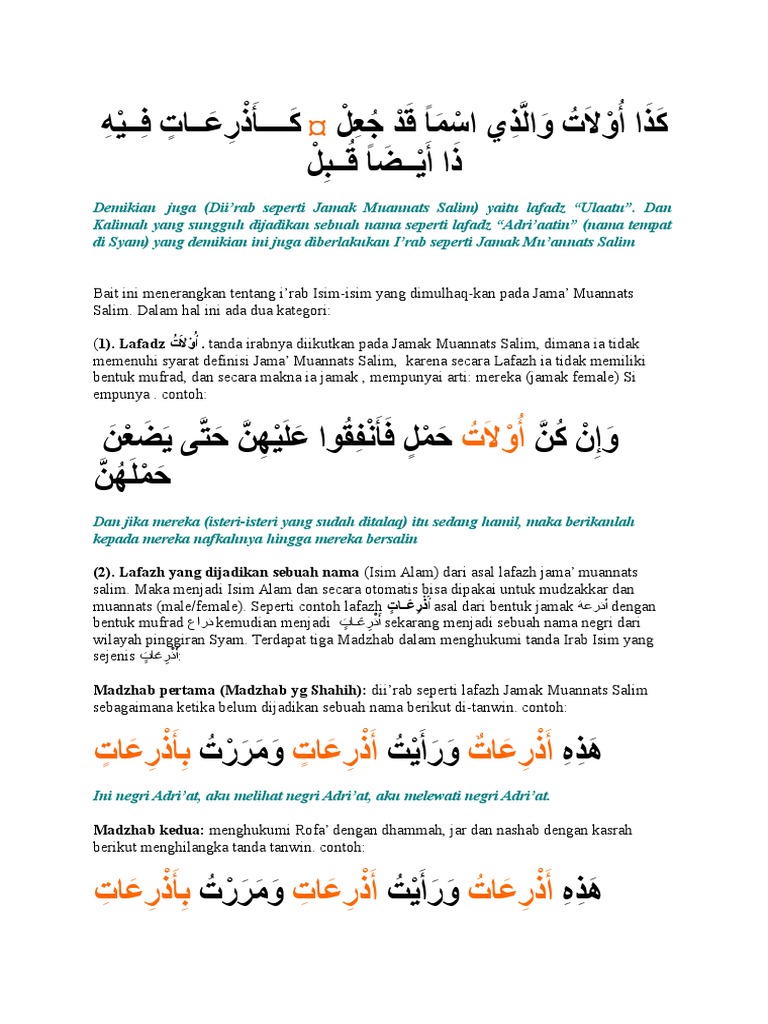 كَذَا أُوْلاَتُ وَالَّذِي اسْمَاً قَدْ جُعِلْ ¤ كَـــأَذْرِعَــاتٍ فِــيْهِ
ذَا أَيْــضَاً قُــبِلْ
Demikian juga (Dii’rab seperti Jamak Muannats Salim) yaitu lafadz “Ulaatu”. Dan
Kalimah yang sungguh dijadikan sebuah nama seperti lafadz “Adri’aatin” (nama tempat
di Syam) yang demikian ini juga diberlakukan I’rab seperti Jamak Mu’annats Salim
Bait ini menerangkan tentang i’rab Isim-isim yang dimulhaq-kan pada Jama’ Muannats
Salim. Dalam hal ini ada dua kategori:
(1). Lafadz أُوْلاَتُ . tanda irabnya diikutkan pada Jamak Muannats Salim, dimana ia tidak
memenuhi syarat definisi Jama’ Muannats Salim, karena secara Lafazh ia tidak memiliki
bentuk mufrad, dan secara makna ia jamak , mempunyai arti: mereka (jamak female) Si
empunya . contoh:
وَإِنْ كُنَّ أُوْلاَتُ حَمْلٍ فَأَنْفِقُوا عَلَيْهِنَّ حَتَّى يَضَعْنَ
حَمْلَهُنَّ
Dan jika mereka (isteri-isteri yang sudah ditalaq) itu sedang hamil, maka berikanlah
kepada mereka nafkahnya hingga mereka bersalin
(2). Lafazh yang dijadikan sebuah nama (Isim Alam) dari asal lafazh jama’ muannats
salim. Maka menjadi Isim Alam dan secara otomatis bisa dipakai untuk mudzakkar dan
muannats (male/female). Seperti contoh lafazh أَذْرِعَــاتٍ asal dari bentuk jamak أذرعة dengan
bentuk mufrad ذراع kemudian menjadi أَذْرِعَـاتٍ sekarang menjadi sebuah nama negri dari
wilayah pinggiran Syam. Terdapat tiga Madzhab dalam menghukumi tanda Irab Isim yang
sejenis أَذْرِعَاتٍ:
Madzhab pertama (Madzhab yg Shahih): dii’rab seperti lafazh Jamak Muannats Salim
sebagaimana ketika belum dijadikan sebuah nama berikut di-tanwin. contoh:
هَذِهِ أَذْرِعَاتٌ وَرَأَيْتُ أَذْرِعَاتٍ وَمَرَرْتُ بِأَذْرِعَاتٍ
Ini negri Adri’at, aku melihat negri Adri’at, aku melewati negri Adri’at.
Madzhab kedua: menghukumi Rofa’ dengan dhammah, jar dan nashab dengan kasrah
berikut menghilangka tanda tanwin. contoh:
هَذِهِ أَذْرِعَاتُ وَرَأَيْتُ أَذْرِعَاتِ وَمَرَرْتُ بِأَذْرِعَاتِ